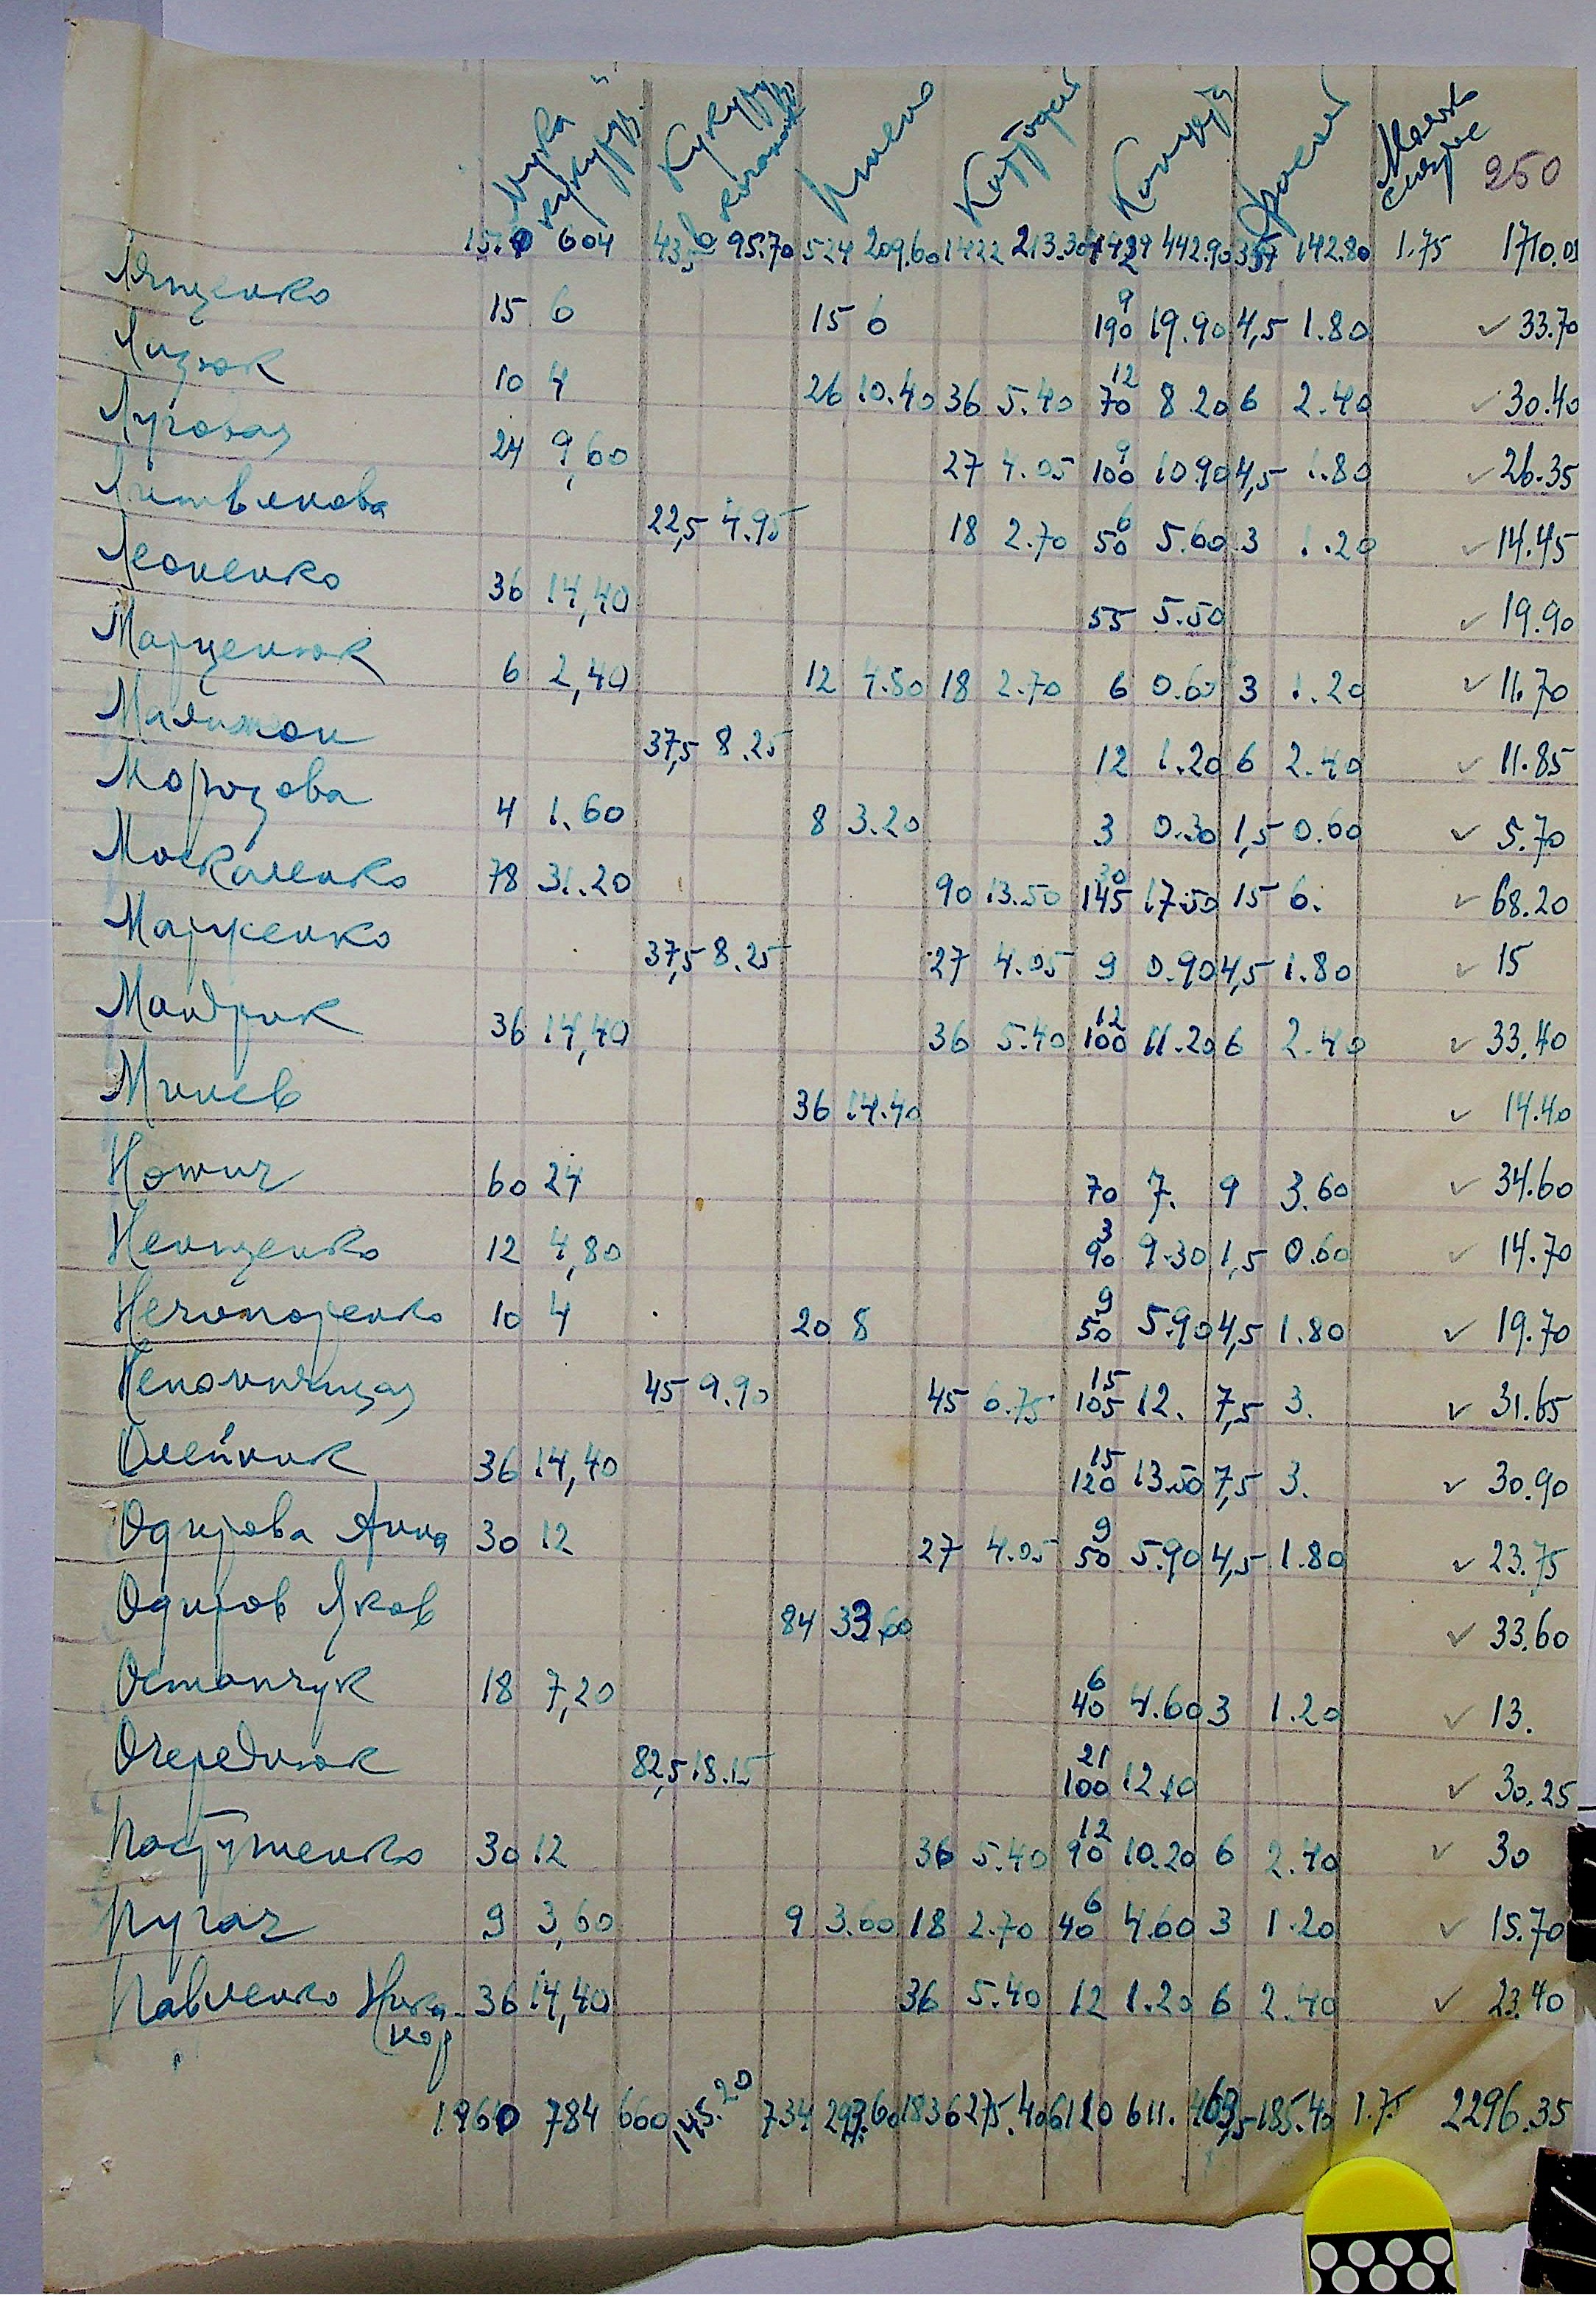 Мука кукуруз. Кукуруз. в кочанах Пшено Картофель Капуста Фасоль Масло сливоч 250
1510 604 435 95.70 524 209.60 1422 213.30 4429 442.90 357 142.80 1.75 1710.05
Лященко 15 6 15 6 9 190 19.90 4,5 1.80 ✓ 33.70
Лизюк 10 4 26 10.40 36 5.40 12 70 8 20 6 2.40 ✓ 30.40
Луговая 24 9,60 27 4.05 9 100 10 90 4,5 1.80 ✓ 26.35
Литвинова 22,5 4.95 18 2.70 6 50 5.60 3 1.20 ✓ 14.45
Леоненко 36 14,40 55 5.50 ✓ 19.90
Марценюк 6 2,40 12 4.80 18 2.70 6 0.60 3 1.20 ✓ 11.70
37,5 8.25 12 1.20 6 2.40 ✓ 11.85
Морозова 4 1.60 8 3.20 3 0.30 1,5 0.60 ✓ 5.70
Москаленко 78 31.20 90 13.50 30 145 17.50 15 6. ✓ 68.20
Марченко 37,5 8.25 27 4.05 9 0.90 4,5 1.80 ✓ 15
Мандрик 36 14,40 36 5.40 12 100 11.20 6 2.40 ✓ 33.40
Минев 36 14.40 ✓ 14.40
60 24 70 7. 9 3.60 ✓ 34.60
Ненщенко 12 4,80 3 90 9.30 1,5 0.60 ✓ 14.70
Нечипоренко 10 4 20 8 9 50 5.90 4,5 1.80 ✓ 19.70
45 9.90 45 6.75 15 105 12. 7,5 3. ✓ 31.65
Олейник 36 14,40 15 120 13.50 7,5 3. ✓ 30.90
Одирова Анна 30 12 27 4.05 9 50 5.90 4,5 1.80 ✓ 23.75
Одиров Яков 84 33.60 ✓ 33.60
Остапчук 18 7,20 6 40 4.60 3 1.20 ✓ 13.
Очереднюк 82,5 18.15 21 100 12.10 ✓ 30.25
Пастушенко 30 12 36 5.40 12 90 10.20 6 2.40 ✓ 30
Пугач 9 3,60 9 3.60 18 2.70 6 40 4.60 3 1.20 ✓ 15.70
Павленко Ника- 36 14,40 36 5.40 12 1.20 6 2.40 ✓ 23.40
нор
1960 784 660 145.20 734 293.60 1836 275.40 6110 611. 463,5 185.40 1.75 2296.35